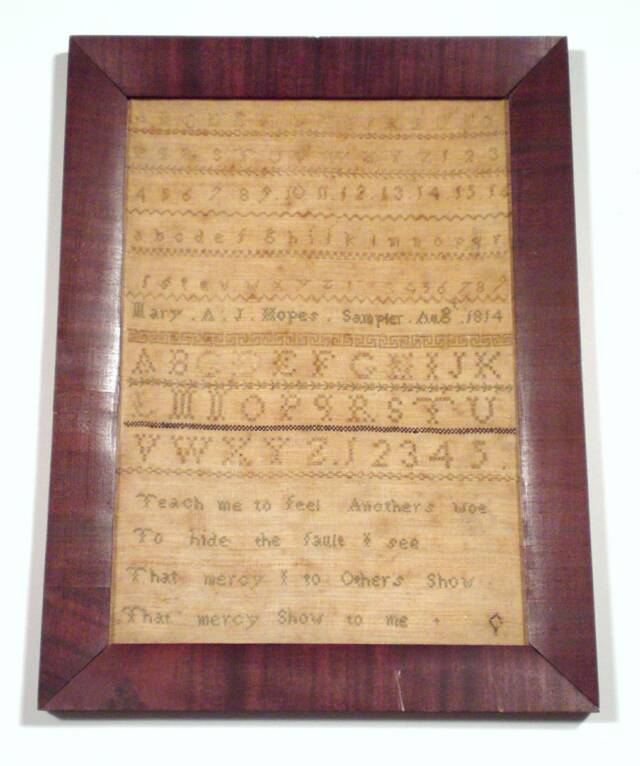 W X Y Z 1 2 3
4 5 6 7 8 9 . 10 11 . 12 . 13 . 14 . 15 . 16
a b c d e f g h i j k l m n o p q r
u v w x y z 1 4 5 6 7 8 9
Mary . A . J . Hopes . Sampler . Aug . 1814
A B C D E F G H I J K
L M N O P Q R S T U
V W X Y Z . 1 2 3 4 5 .
Teach me to feel Anothers woe
To hide the fault I see
That mercy I to Others Show
That mercy Show to me